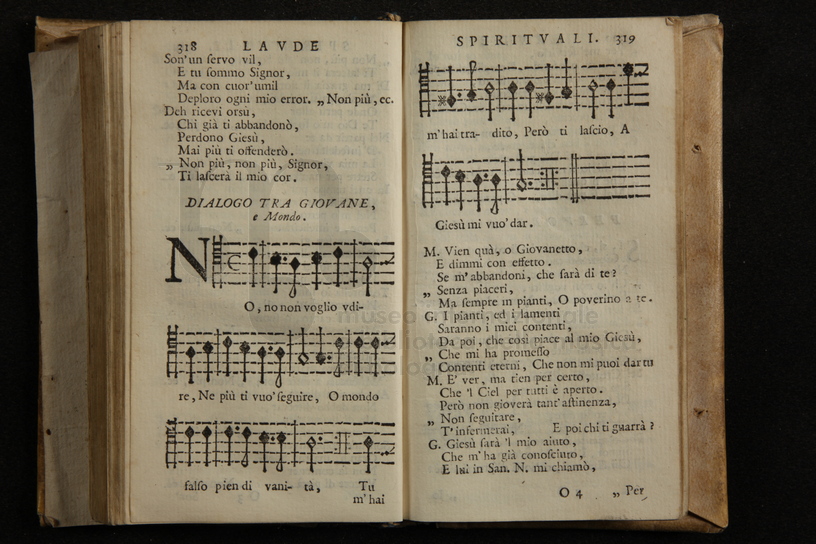 318 LAVDE
Son'un servo vil,
E tu sommo Signor,
Ma con cuor'umil
Deploro ogni mio error. „ Non più, ec.
Deh ricevi orsù,
Chi già ti abbandonò,
Perdono Giesù,
Mai più ti offenderò.
„ Non più, non più, Signor,
Ti lascerà il mio cor.
DIALOGO TRA GIOVANE,
e Mondo.
N
O, no non voglio vdi-
re, Ne più ti vuo' seguire, O mondo
falso pien di vani- tà, Tu
m'hai
SPIRITVALI. 319
m'hai tra- dito, Però ti lascio, A
Giesù mi vuo' dar.
M. Vien quà, o Giovanetto,
E dimmi con effetto.
Se m'abbandoni, che sarà di te?
„ Senza piaceri,
Ma sempre in pianti, O poverino a te.
G. I pianti, ed i lamenti
Saranno i miei contenti,
Da poi, che così piace al mio Giesù,
„ Che mi ha promesso
Contenti eterni, Che non mi puoi dar tu
M. E' ver, ma tien per certo,
Che 'l Ciel per tutti è aperto.
Però non gioverà tant'astinenza,
„ Non seguitare,
T'infermerai, E poi chi ti guarrà?
G. Giesù sarà 'l mio aiuto,
Che m'ha già conosciuto,
E lui in San. N. mi chiamò,
O 4 „ Per